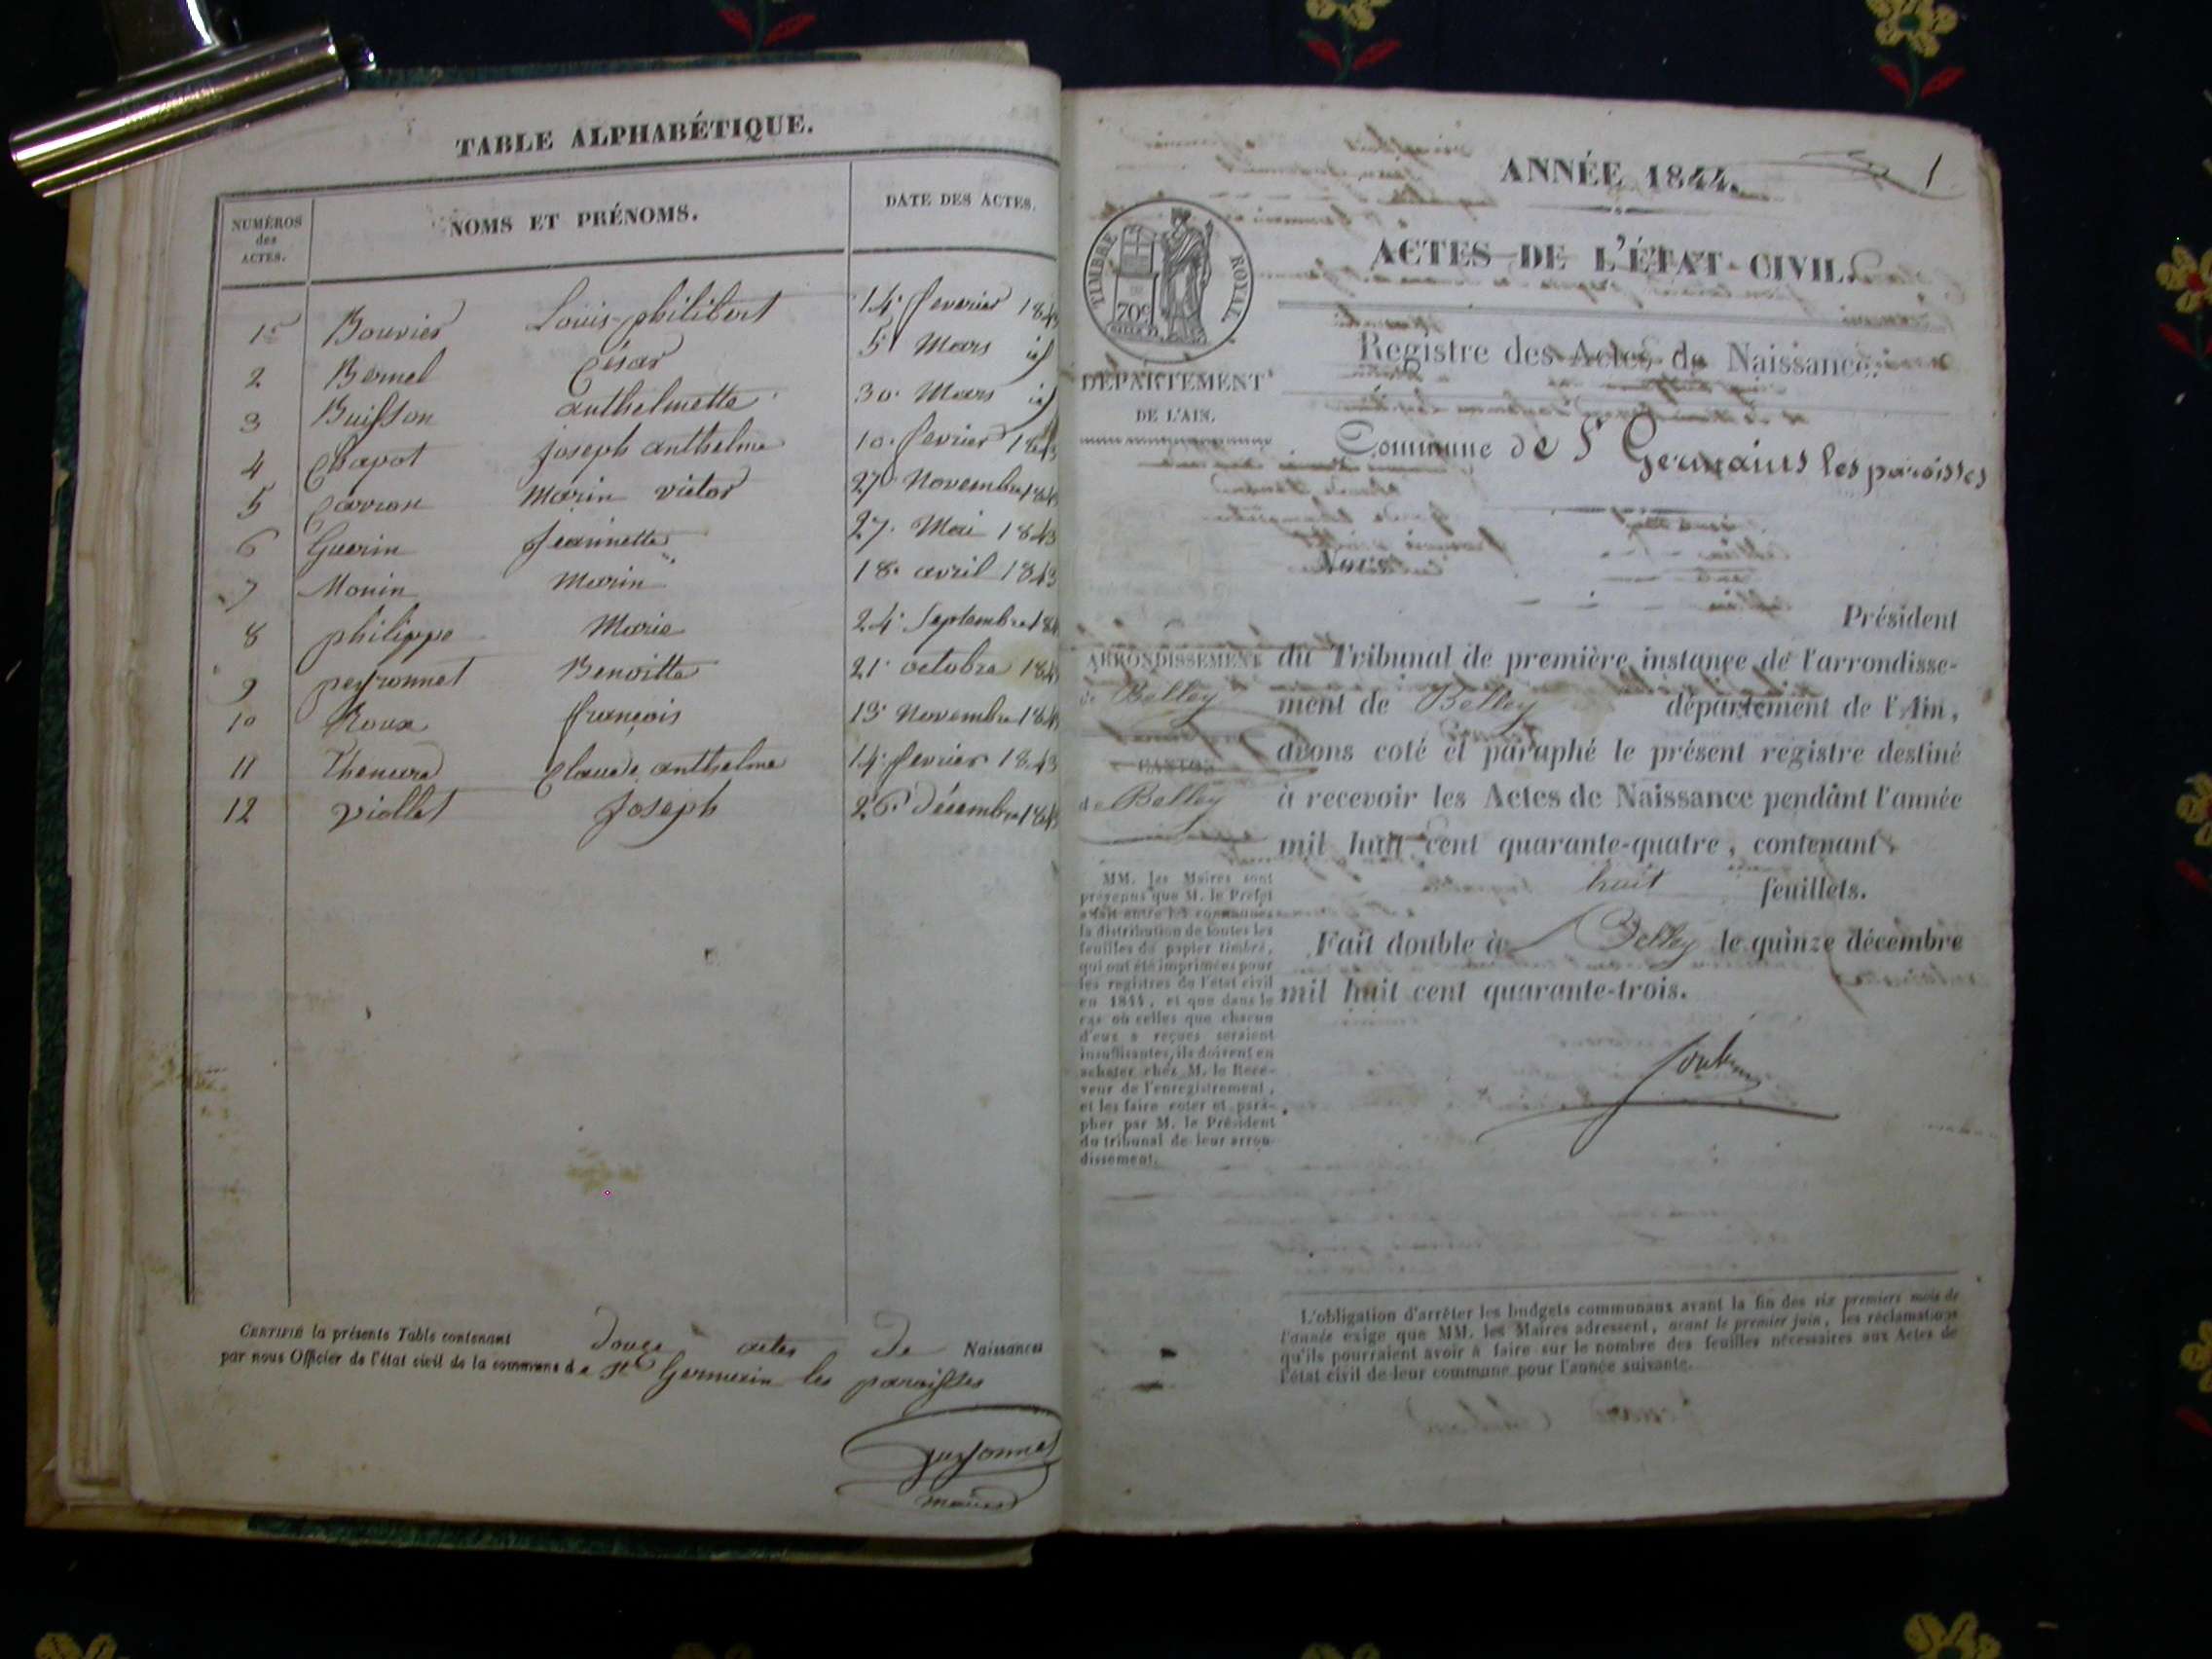 TABLE ALPHABÉTIQUE.
NUMÉROS des ACTES. NOMS ET PRÉNOMS. DATE DES ACTES.
1er Bouvier Louis philibert 14 fevrier 1843
2 Bernel César 5 Mars id
3 Buisson anthelmette 30 Mars id
4 Chapot joseph anthelme 10 fevrier 1843
5 Carron Marin victor 27 Novembre 1843
6 Guerin Jeannette 27 Mai 1843
7 Monin Marin 18 avril 1843
8 philippe Marie 24 Septembre 184
9 peysonnet Benoitte 21 octobre 184
10 Roux françois 13 Novembre 184
11 Claude anthelme 14 fevrier 1843
12 viollet Joseph 26 décembre 184
CERTIFIÉ la présente Table contenant douze actes de Naissances
par nous Officier de l'état civil de la commune de St Germain les paroisses
maire
1
ANNÉE 1844.
ACTES DE L'ÉTAT-CIVIL.
TIMBRE ROYAL
70c
Registre des Actes de Naissance.
DÉPARTEMENT
DE L'AIN.
Commune de St Germains les paroisses
Nous
Président
ARRONDISSEMENT
de Belley
CANTON
de Belley
du Tribunal de première instance de l'arrondisse-
ment de Belley département de l'Ain,
avons coté et paraphé le présent registre destiné
à recevoir les Actes de Naissance pendant l'année
mil huit cent quarante-quatre, contenant
huit feuillets.
Fait double à Belley le quinze décembre
mil huit cent quarante-trois.
MM. les Maires sont
prévenus que M. le Préfet
a fait entre les communes
la distribution de toutes les
feuilles du papier timbré,
qui ont été imprimées pour
les registres de l'état civil
en 1844, et que dans le
cas où celles que chacun
d'eux a reçues seraient
insuffisantes, ils doivent en
acheter chez M. le Rece-
veur de l'enregistrement,
et les faire coter et para-
pher par M. le Président
du tribunal de leur arron-
dissement.
L'obligation d'arrêter les budgets communaux avant la fin des six premiers mois de
l'année exige que MM. les Maires adressent, avant le premier juin, les réclamations
qu'ils pourraient avoir à faire sur le nombre des feuilles nécessaires aux Actes de
l'état civil de leur commune pour l'année suivante.